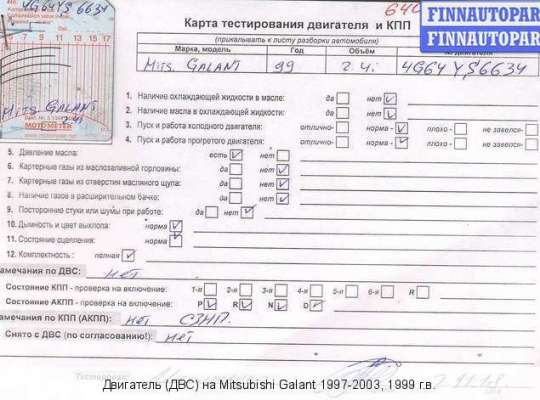 4G64YS6634
5 7 9 11 13 15 17
Mits. GALANT
MOTOMETER
640
FINNAUTOPAR
FINNAUTOPAR
Карта тестирования двигателя и КПП
(прикалывать к листу разборки автомобиля)
Марка, модель Год Объём № двигателя
Mits. GALANT 99 2.4i 4G64 YS6634
1. Наличие охлаждающей жидкости в масле: да нет
2. Наличие масла в охлаждающей жидкости: да нет
3. Пуск и работа холодного двигателя: отлично- норма - плохо- не завелся-
4. Пуск и работа прогретого двигателя: отлично- норма - плохо - не завелся-
5. Давление масла: есть нет
6. Картерные газы из маслозаливной горловины: да нет
7. Картерные газы из отверстия масляного щупа: да нет
8. Наличие газов в расширительном бачке: да нет
9. Посторонние стуки или шумы при работе: да нет
10. Дымность и цвет выхлопа: норма
11. Состояние сцепления: норма
12. Комплектность: полная
амечания по ДВС: нет
Состояние КПП - проверка на включение: 1-я 2-я 3-я 4-я 5-я R
Состояние АКПП - проверка на включение: P R N D
амечания по КПП (АКПП): нет СЗНП.
Снято с ДВС (по согласованию!): нет
Двигатель (ДВС) на Mitsubishi Galant 1997-2003, 1999 г.в.